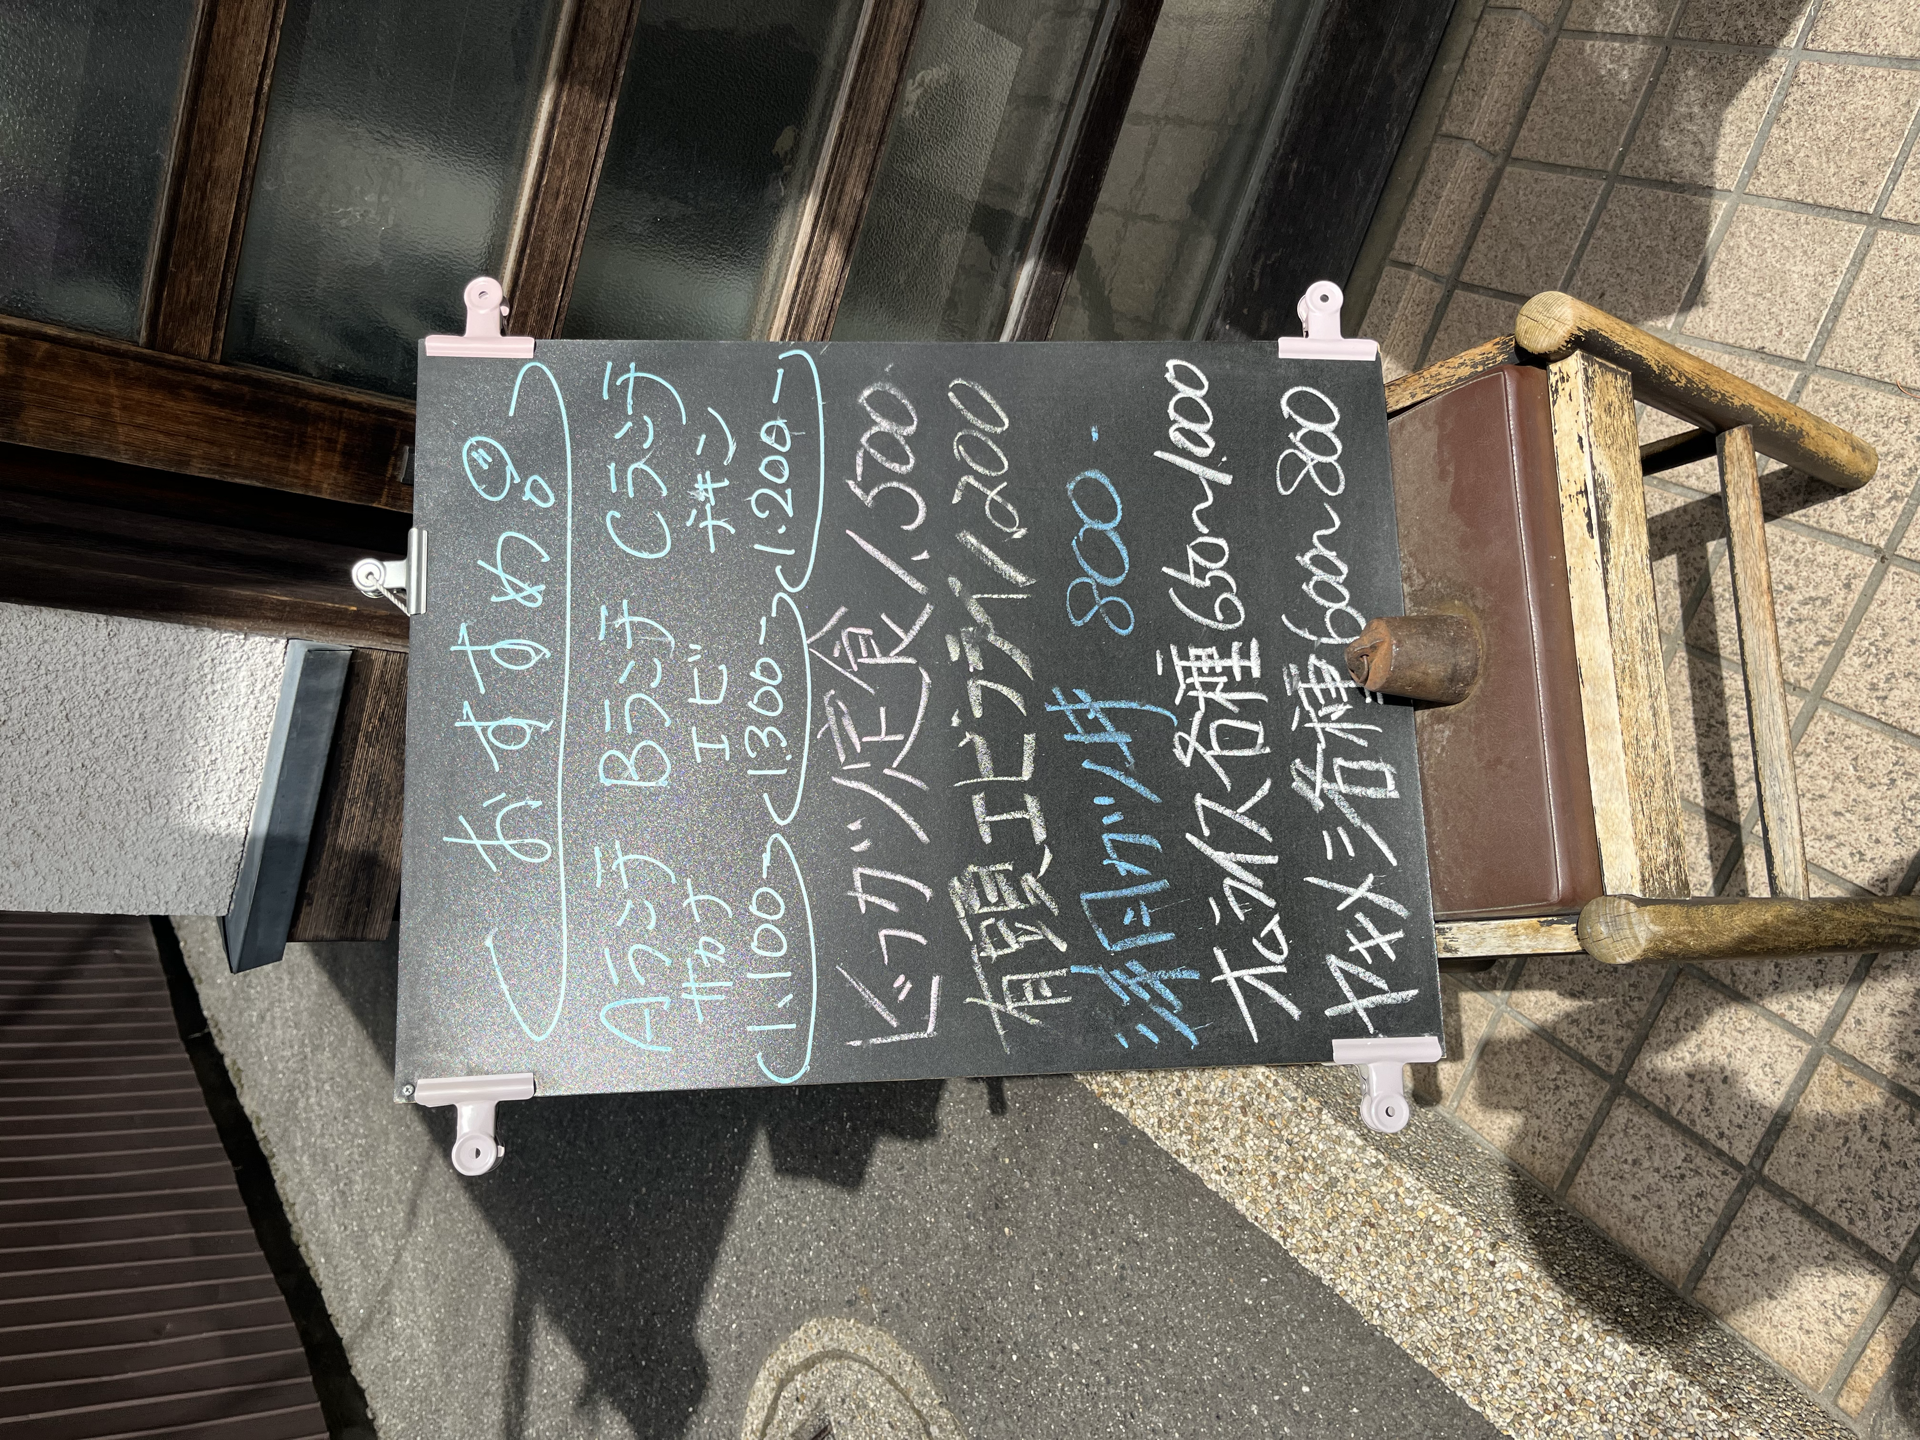 おすすめ
Aランチ Bランチ Cランチ
サカナ エビ チキン
1.100〜 1.300〜 1.200ー
ビフカツ定食 1,500
有頭エビフライ 1,200
洋风カツ丼 800-
オムライス各種 650〜1,000
ヤキメシ各種 600〜800